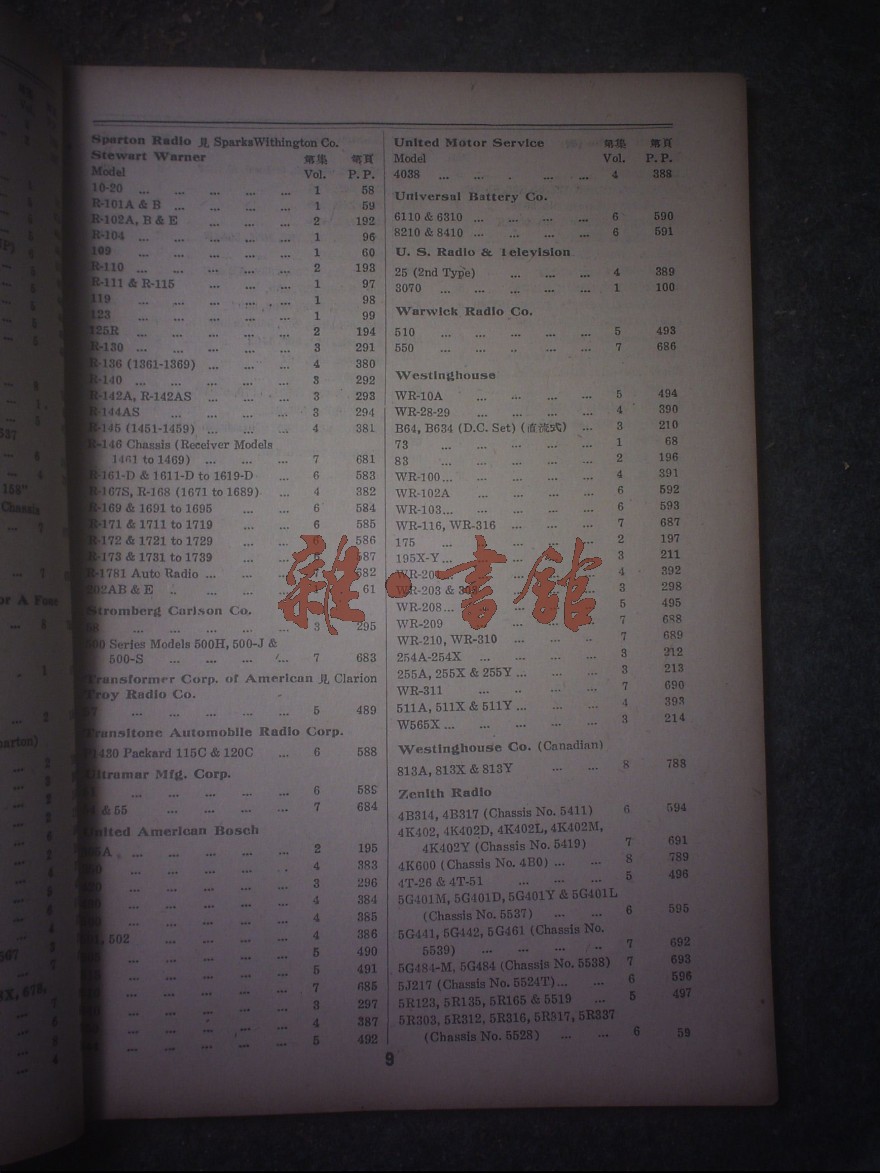 Sparton Radio 見 SparksWithington Co.
Stewart Warner 第集 第頁
Model Vol. P. P.
10-20 ... ... ... ... ... 1 58
R-101A & B ... ... ... ... 1 59
R-102A, B & E ... ... ... 2 192
R-104 ... ... ... ... ... 1 96
109 ... ... ... ... ... 1 60
R-110 ... ... ... ... ... 2 193
R-111 & R-115 ... ... ... 1 97
119 ... ... ... ... ... 1 98
123 ... ... ... ... ... 1 99
125R ... ... ... ... ... 2 194
R-130 ... ... ... ... ... 3 291
R-136 (1361-1369) ... ... ... 4 380
R-140 ... ... ... ... ... 3 292
R-142A, R-142AS ... ... ... 3 293
R-144AS ... ... ... ... 3 294
R-145 (1451-1459) ... ... ... 4 381
R-146 Chassis (Receiver Models
1461 to 1469) ... ... ... 7 681
R-161-D & 1611-D to 1619-D ... 6 583
R-167S, R-168 (1671 to 1689) ... 4 382
R-169 & 1691 to 1695 ... ... 6 584
R-171 & 1711 to 1719 ... ... 6 585
R-172 & 1721 to 1729 ... ... 6 586
R-173 & 1731 to 1739 ... ... 587
R-1781 Auto Radio ... ... ... 682
202AB & E .. ... ... ... 61
Stromberg Carlson Co.
... ... ... ... ... 3 295
Series Models 500H, 500-J &
500-S ... ... ... ... 7 683
Transformer Corp. of American 見 Clarion
Troy Radio Co.
... ... ... ... ... 5 489
Transitone Automobile Radio Corp.
1430 Packard 115C & 120C ... 6 588
Ultramar Mfg. Corp.
... ... ... ... ... 6 589
& 55 ... ... ... ... 7 684
United American Bosch
... ... ... ... ... 2 195
... ... ... ... ... 4 383
... ... ... ... ... 3 296
... ... ... ... ... 4 384
... ... ... ... ... 4 385
502 ... ... ... ... 4 386
... ... ... ... ... 5 490
... ... ... ... ... 5 491
... ... ... ... ... 7 685
... ... ... ... ... 3 297
... ... ... ... ... 4 387
... ... ... ... ... 5 492
United Motor Service 第集 第頁
Model Vol. P. P.
4038 ... ... . ... ... 4 388
Universal Battery Co.
6110 & 6310 ... ... ... ... 6 590
8210 & 8410 ... ... ... ... 6 591
U. S. Radio & Television
25 (2nd Type) ... ... ... 4 389
3070 ... ... ... ... ... 1 100
Warwick Radio Co.
510 ... ... ... ... ... 5 493
550 ... ... .. ... ... 7 686
Westinghouse
WR-10A ... ... ... ... 5 494
WR-28-29 ... ... ... ... 4 390
B64, B634 (D.C. Set) (直流式) ... 3 210
73 ... ... ... ... ... 1 68
83 ... ... ... ... ... 2 196
WR-100... ... ... ... ... 4 391
WR-102A ... ... ... ... 6 592
WR-103... ... ... ... ... 6 593
WR-116, WR-316 ... ... ... 7 687
175 ... ... ... ... ... 2 197
195X-Y... ... ... ... ... 3 211
... ... ... ... 4 392
WR-203 & ... ... ... 3 298
WR-208... ... ... ... ... 5 495
WR-209 ... ... ... ... 7 688
WR-210, WR-310 ... ... .. 7 689
254A-254X ... ... ... ... 3 212
255A, 255X & 255Y ... ... ... 3 213
WR-311 ... .. ... ... 7 690
511A, 511X & 511Y ... ... ... 4 393
W565X ... ... ... ... ... 3 214
Westinghouse Co. (Canadian)
813A, 813X & 813Y ... ... 8 788
Zenith Radio
4B314, 4B317 (Chassis No. 5411) 6 594
4K402, 4K402D, 4K402L, 4K402M,
4K402Y (Chassis No. 5419) 7 691
4K600 (Chassis No. 4B0) ... ... 8 789
4T-26 & 4T-51 ... ... ... 5 496
5G401M, 5G401D, 5G401Y & 5G401L
(Chassis No. 5537) ... ... 6 595
5G441, 5G442, 5G461 (Chassis No.
5539) ... ... ... .. 7 692
5G484-M, 5G484 (Chassis No. 5538) 7 693
5J217 (Chassis No. 5524T)... ... 6 596
5R123, 5R135, 5R165 & 5519 ... 5 497
5R303, 5R312, 5R316, 5R317, 5R337
(Chassis No. 5528) ... ... 6 59
9
雜·書館